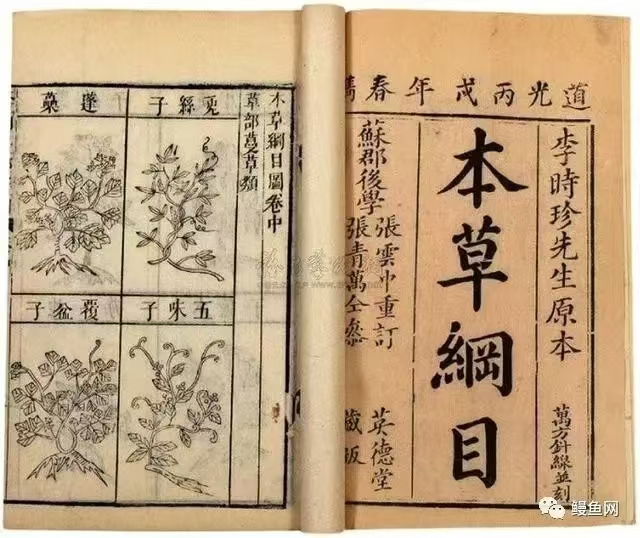 道光丙戌年春鐫
李時珍先生原本
萬方針線並刻
本草綱目
蘇郡後學
張雲中重訂
張青萬仝參
英德堂
藏版
本草綱目圖卷中
草部蔓草類
兎絲子
蓬蘽
五味子
覆盆子
鳗鱼网